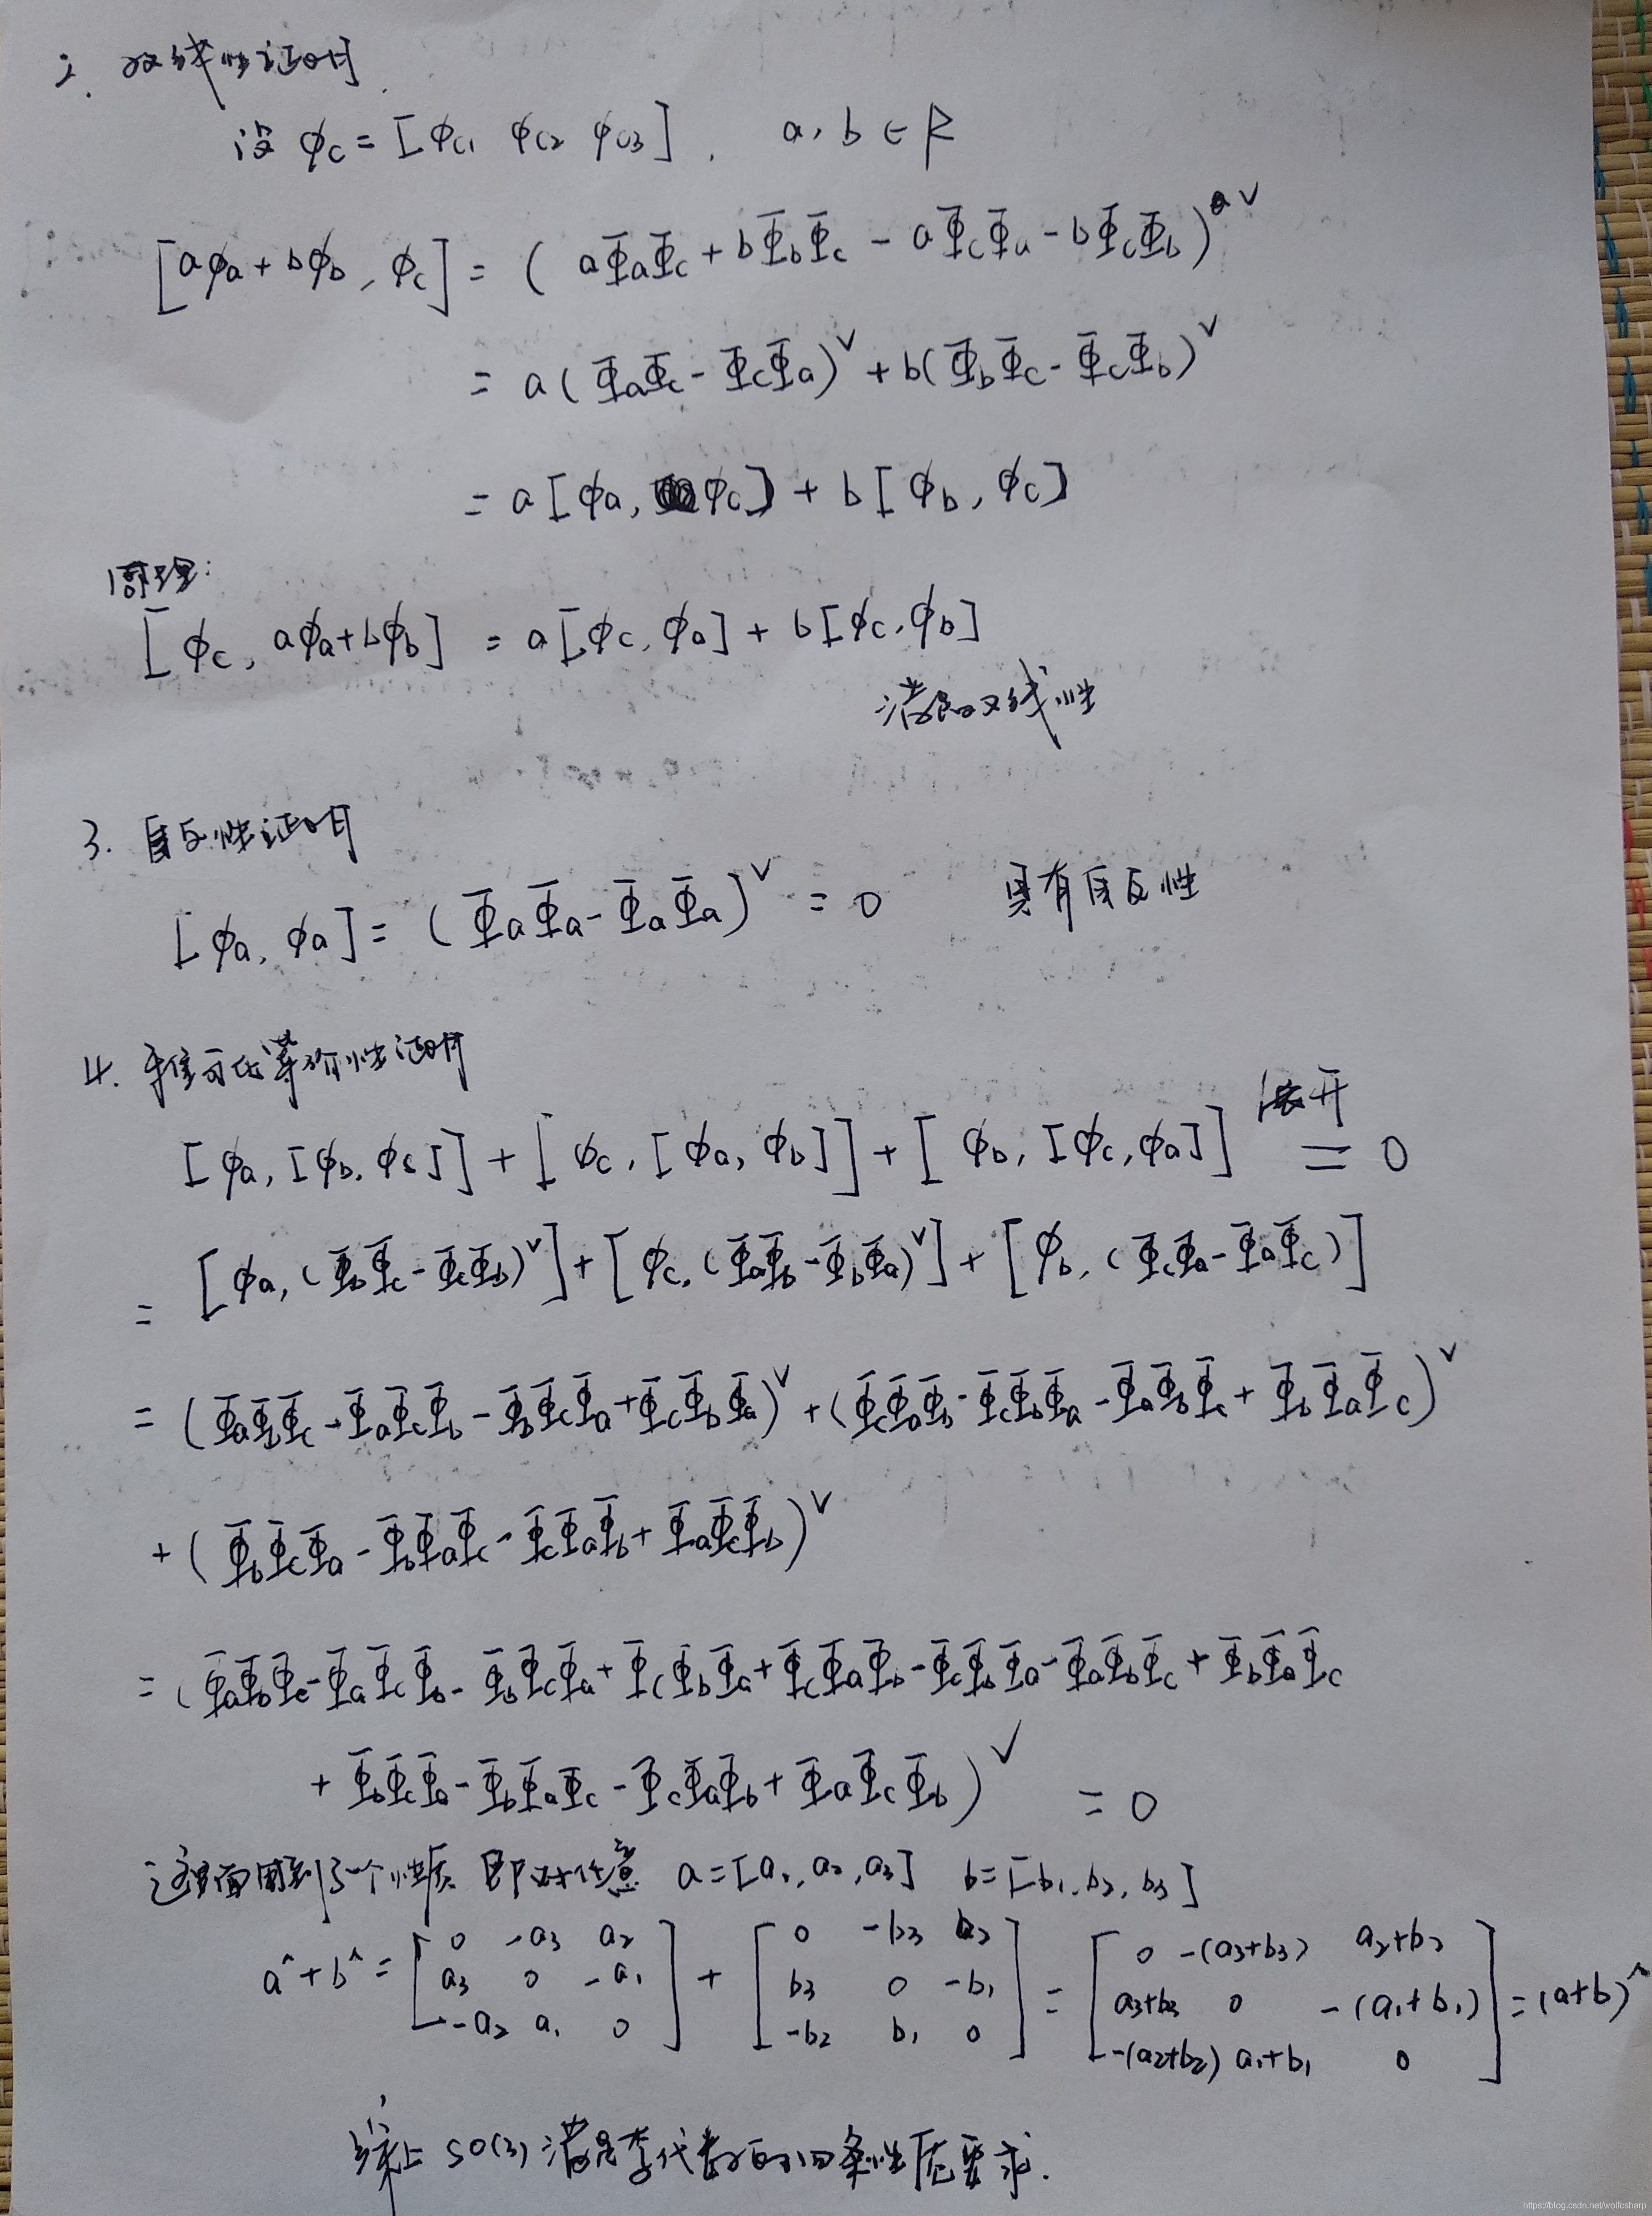 2. 双线性证明
设 ϕc = [ϕc1 ϕc2 ϕc3]. a, b ∈ R
[aϕa + bϕb, ϕc] = (aΦaΦc + bΦbΦc - aΦcΦa - bΦcΦb)^∨
= a(ΦaΦc - ΦcΦa)^∨ + b(ΦbΦc - ΦcΦb)^∨
= a[ϕa, ϕc] + b[ϕb, ϕc]
同理:
[ϕc, aϕa+bϕb] = a[ϕc, ϕa] + b[ϕc, ϕb]
满足双线性
3. 自反性证明
[ϕa, ϕa] = (ΦaΦa - ΦaΦa)^∨ = 0 具有自反性
4. 雅可比等价性证明
[ϕa, [ϕb, ϕc]] + [ϕc, [ϕa, ϕb]] + [ϕb, [ϕc, ϕa]] 展开 = 0
= [ϕa, (ΦbΦc - ΦcΦb)^∨] + [ϕc, (ΦaΦb - ΦbΦa)^∨] + [ϕb, (ΦcΦa - ΦaΦc)]
= (ΦaΦbΦc - ΦaΦcΦb - ΦbΦcΦa + ΦcΦbΦa)^∨ + (ΦcΦaΦb - ΦcΦbΦa - ΦaΦbΦc + ΦbΦaΦc)^∨
+ (ΦbΦcΦa - ΦbΦaΦc - ΦcΦaΦb + ΦaΦcΦb)^∨
= (ΦaΦbΦc - ΦaΦcΦb - ΦbΦcΦa + ΦcΦbΦa + ΦcΦaΦb - ΦcΦbΦa - ΦaΦbΦc + ΦbΦaΦc
+ ΦbΦcΦa - ΦbΦaΦc - ΦcΦaΦb + ΦaΦcΦb)^∨ = 0
这里面用到了一个性质 即对任意 a=[a1, a2, a3] b=[b1, b2, b3]
a^ + b^ = [0 -a3 a2; a3 0 -a1; -a2 a1 0] + [0 -b3 b2; b3 0 -b1; -b2 b1 0] = [0 -(a3+b3) a2+b2; a3+b3 0 -(a1+b1); -(a2+b2) a1+b1 0] = (a+b)^
综上 so(3) 满足李代数的四条性质要求.
https://blog.csdn.net/wolfcsharp